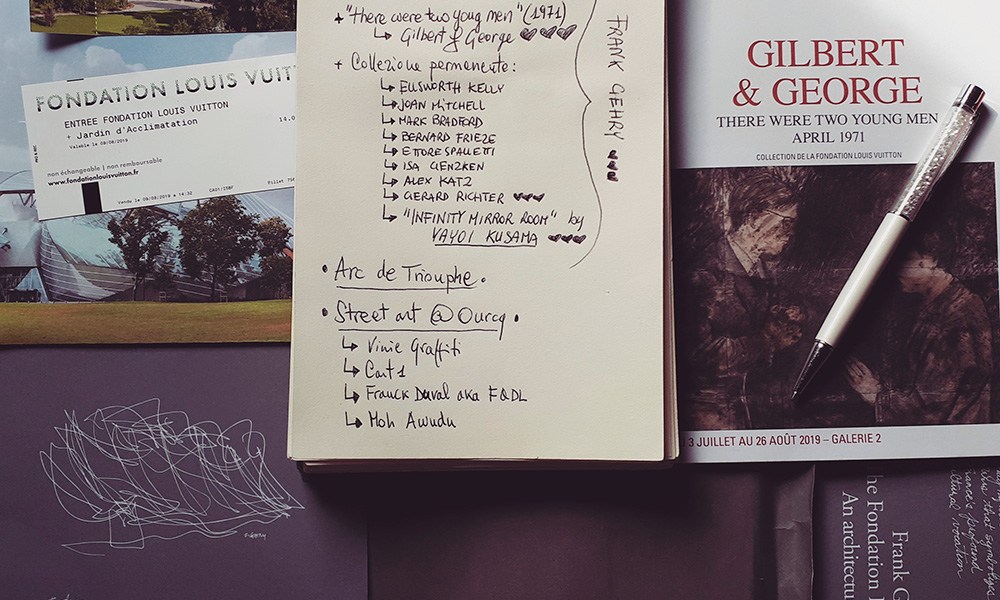 FONDATION LOUIS VUIT
ENTREE FONDATION LOUIS VUITTON
+ Jardin d'Acclimatation
14.0
Valable le 08/08/2019
non échangeable | non remboursable
www.fondationlouisvuitton.fr
Vendu le 08/08/2019 à 14.32
+ "there were two young men" (1971)
↳ Gilbert & George ♥♥♥
+ Collezione permanente:
↳ ELLSWORTH KELLY
↳ JOAN MITCHELL
↳ MARK BRADFORD
↳ BERNARD FRIEZE
↳ ETTORE SPALLETTI
↳ ISA GENZKEN
↳ ALEX KATZ
↳ GERARD RICHTER ♥♥♥
↳ "INFINITY MIRROR ROOM" by
YAYOI KUSAMA ♥♥♥
FRANK GEHRY ♥♥♥
• Arc de Triouphe.
• Street art @ Ourcq •
↳ Vinie Graffiti
↳ Cart1
↳ Franck Duval aka FQDL
↳ Moh Awudu
GILBERT
& GEORGE
THERE WERE TWO YOUNG MEN
APRIL 1971
COLLECTION DE LA FONDATION LOUIS VUITTON
3 JUILLET AU 26 AOÛT 2019 – GALERIE 2
Frank G
he Fondation
An architectu
that symbolizes
profound
vocation